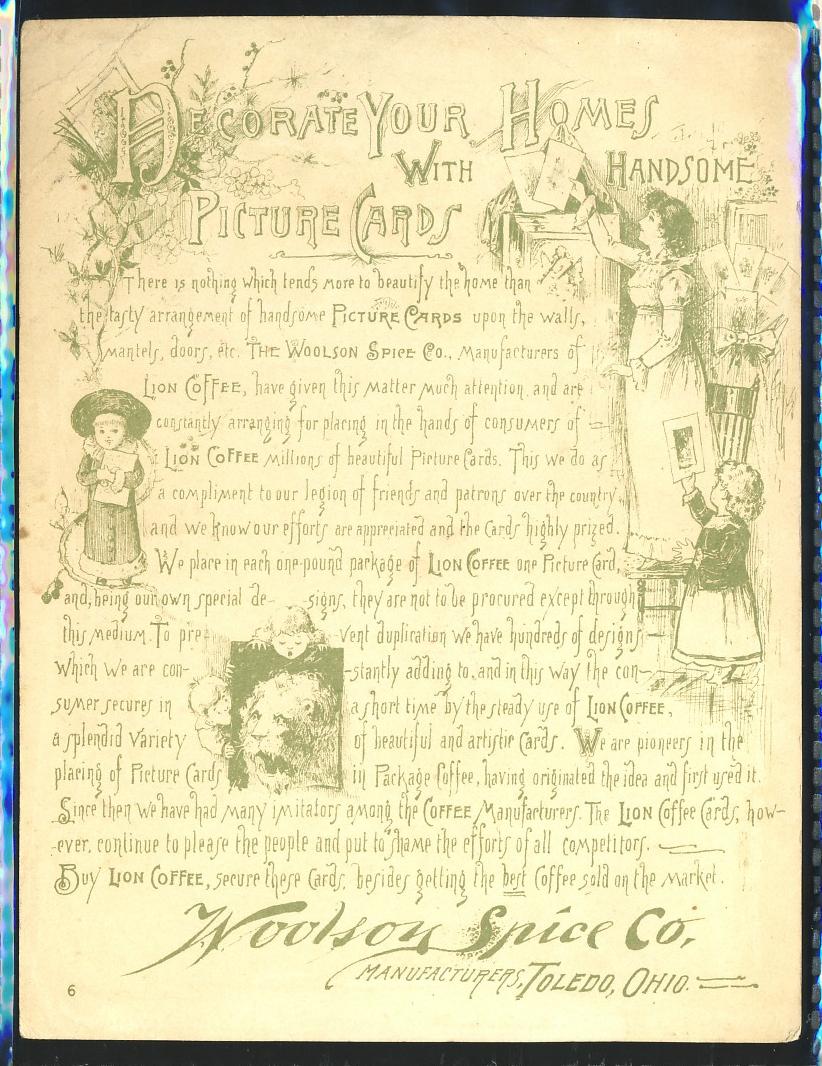 DECORATE YOUR HOMES
WITH HANDSOME
PICTURE CARDS
There is nothing which tends more to beautify the home than
the tasty arrangement of handsome PICTURE CARDS upon the walls,
mantels, doors, etc. THE WOOLSON SPICE CO., Manufacturers of
LION COFFEE, have given this matter much attention, and are
constantly arranging for placing in the hands of consumers of
LION COFFEE millions of beautiful Picture Cards. This we do as
a compliment to our legion of friends and patrons over the country,
and we know our efforts are appreciated and the Cards highly prized.
We place in each one-pound package of LION COFFEE one Picture Card,
and, being our own special de- signs, they are not to be procured except through
this medium. To pre- vent duplication we have hundreds of designs
which we are con- stantly adding to, and in this way the con-
sumer secures in a short time by the steady use of LION COFFEE,
a splendid variety of beautiful and artistic Cards. We are pioneers in the
placing of Picture Cards in Package Coffee, having originated the idea and first used it.
Since then we have had many imitators among the COFFEE Manufacturers. The LION Coffee Cards, how-
ever, continue to please the people and put to shame the efforts of all competitors.
Buy LION COFFEE, secure these Cards, besides getting the best Coffee sold on the market.
Woolson Spice Co.,
MANUFACTURERS, TOLEDO, OHIO.
6